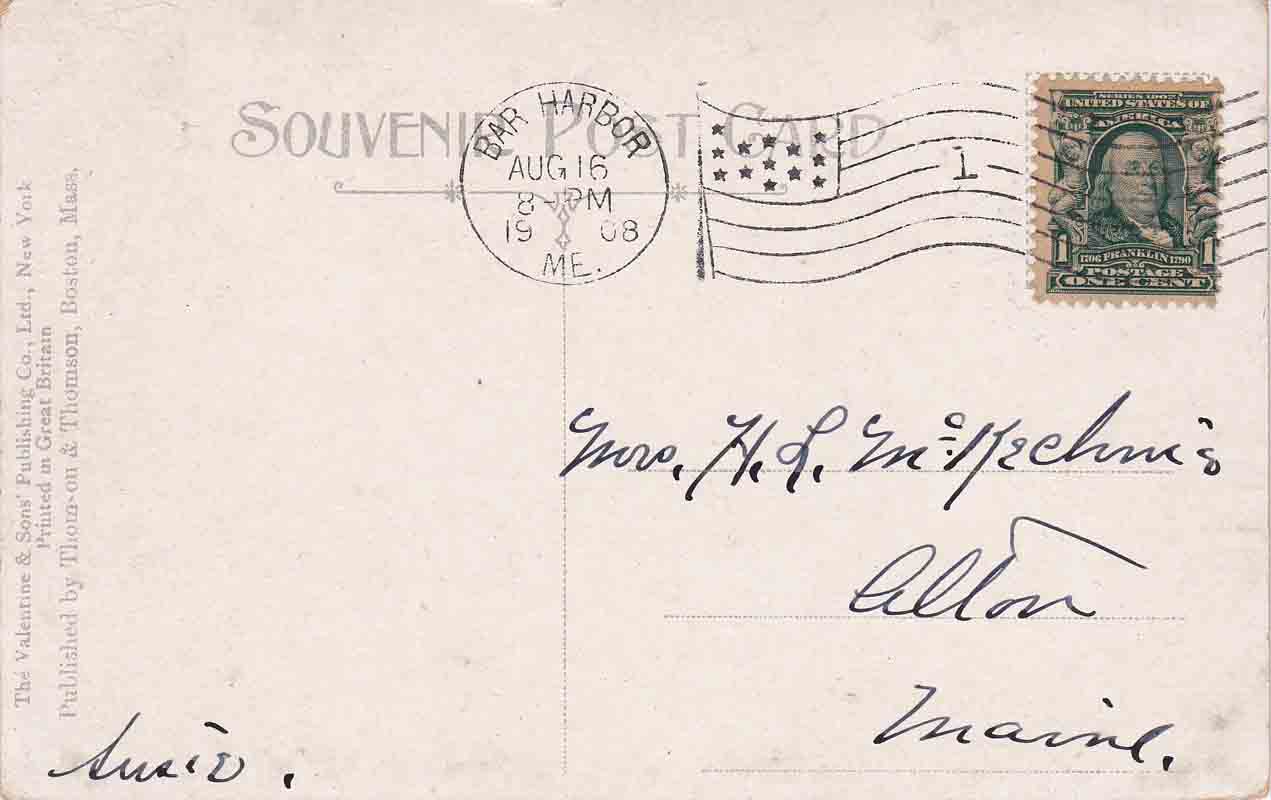 SOUVENIR POST CARD
BAR HARBOR
AUG 16
8-PM
1908
ME.
1
SERIES 1902
UNITED STATES OF
AMERICA
1 1706 FRANKLIN 1790 1
POSTAGE
ONE CENT
The Valentine & Sons' Publishing Co., Ltd., New York
Printed in Great Britain
Published by Thomson & Thomson, Boston, Mass.
Mrs. H. L. McKechnie
Alton
Maine.
Susie.